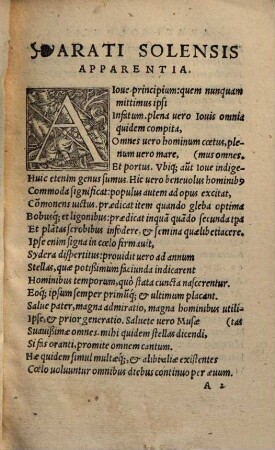 ARATI SOLENSIS
APPARENTIA.
A Ioue principium: quem nunquam
mittimus ipsi
Infatum. plena vero Iouis omnia
quidem compita,
Omnes vero hominum cœtus, ple-
num vero mare, (mus omnes.
Et portus. Vbiq; aũt Ioue indige-
Huic etenim genus sumus. Hic vero beneuolus hominibꝰ
Commoda significat: populus autem ad opus excitat,
Cõmonens uictus. prædicat item quando gleba optima
Bobusq; et ligonibus: prædicat inquã quãdo secunda tpa
Et plãtas scrobibus infodere, & semina quælibet iacere.
Ipse enim signa in cœlo firmauit,
Sydera dispertitus: prouidit uero ad annum
Stellas, quæ potißimum faciunda indicarent
Hominibus temporum, quò stata cuncta nascerentur.
Eoq; ipsum semper primũq; & ultimum placant.
Salue pater, magna admiratio, magna hominibus utili-
Ipse, & prior generatio. Saluete vero Musæ (tas
Suauißimæ omnes. mihi quidem stellas dicendi,
Si fas oranti, promite omnem cantum.
Hæ quidem simul multæq; & alibi aliæ existentes
Cœlo voluuntur omnibus diebus continuo per æuum.
A 2